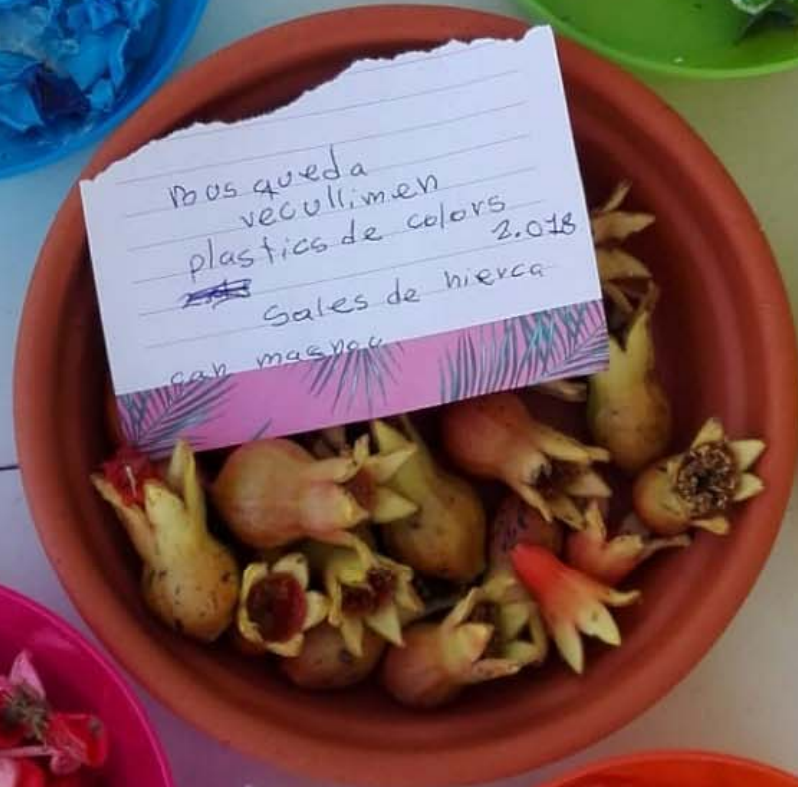 nos queda
vecullimen
plastics de colors
2.018
Sales de hierca
can masnou